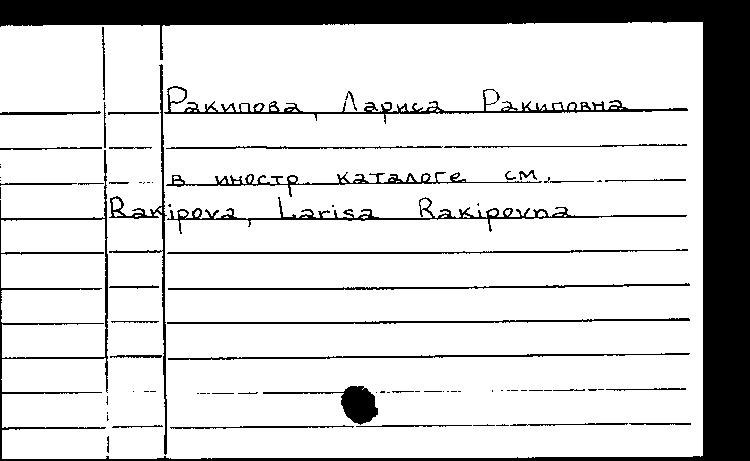 Ракипова, Лариса Ракиповна
в иностр. каталоге см.
Rakipova, Larisa Rakipovna